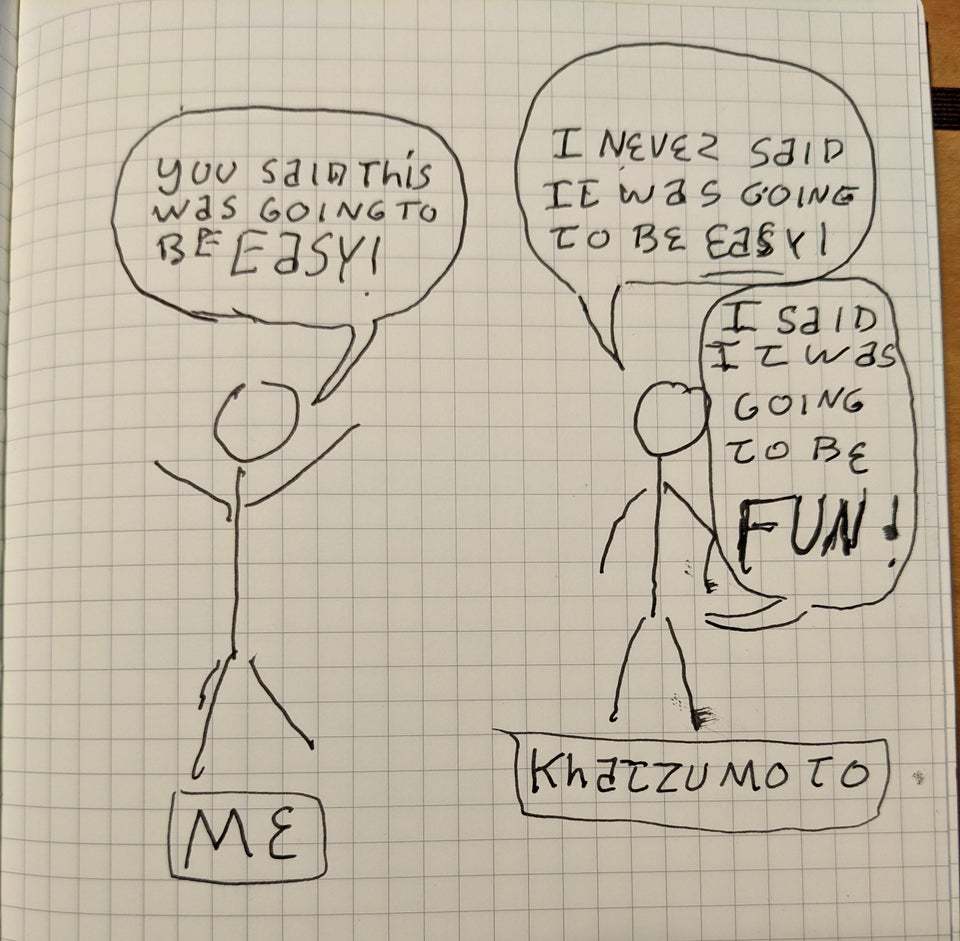 YOU SaID This
WaS GOING TO
BE EaSY!
I NEVER SaID
IT WaS GOING
TO BE EaSY!
I SaID
IT WaS
GOING
TO BE
FUN!
ME
KhaTZZUMOTO